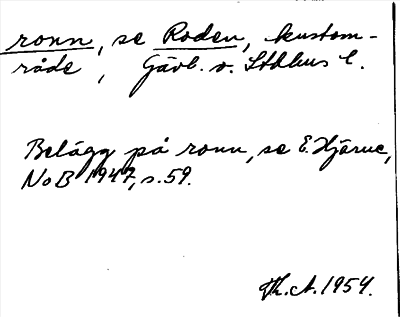 ronn, se Roden, kustom-
råde, Gävl. o. Sthlms l.
Belägg på ronn, se E. Hjärne,
NoB 1947, s. 59.
Th. A. 1954.